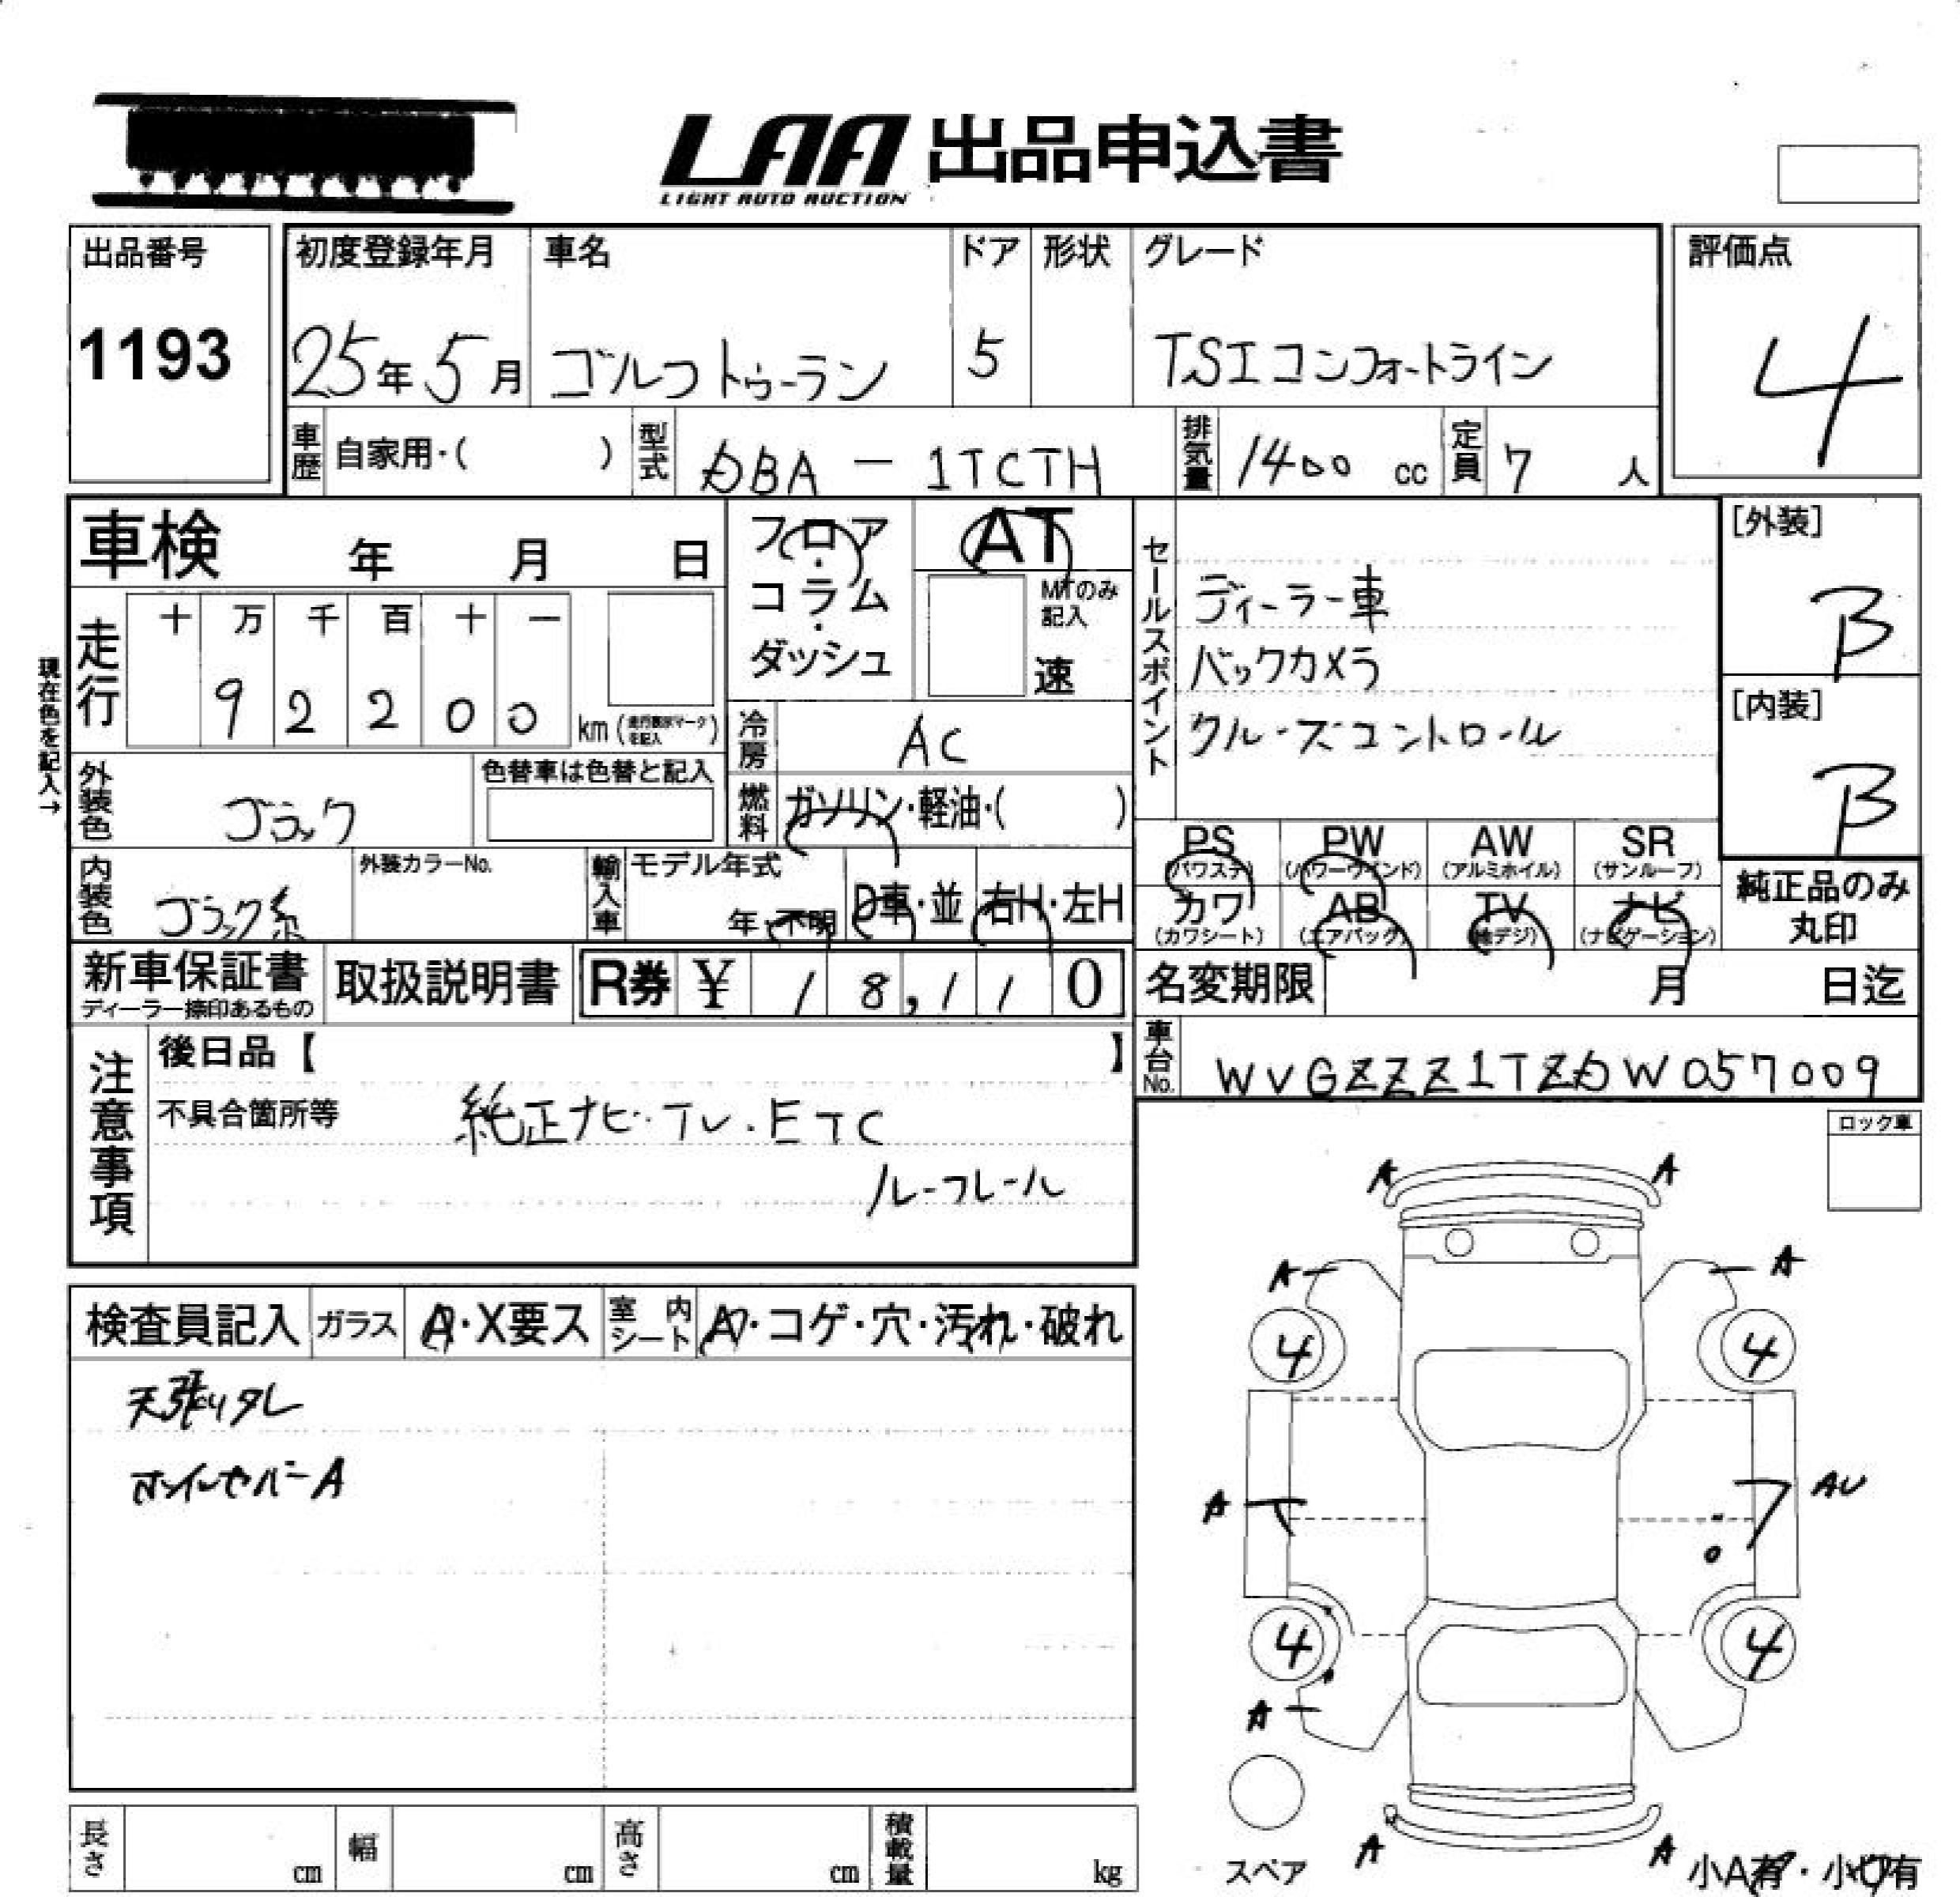 LAA 出品申込書
LIGHT AUTO AUCTION
出品番号
1193
初度登録年月
25年 5月
車名
ゴルフトゥーラン
ドア
5
形状
グレード
TSI コンフォートライン
評価点
4
車歴 自家用・( )
型式 DBA - 1TCTH
排気量 1400 cc
定員 7 人
車検 年 月 日
フロア・コラム・ダッシュ
AT
MTのみ記入
速
セールスポイント
ディーラー車
バックカメラ
クルーズコントロール
[外装]
B
[内装]
B
現在色を記入→
走行
十 万 千 百 十 一
9 2 2 0 0
km (走行表示マークを記入)
冷房 AC
燃料 ガソリン・軽油・( )
外装色 ブラック
色替車は色替と記入
内装色 ブラック系
外装カラーNo.
輸入車
モデル年式
年・不明
D車・並
右H・左H
PS (パワステ)
PW (パワーウインド)
AW (アルミホイル)
SR (サンルーフ)
カワ (カワシート)
AB (エアバック)
TV (地デジ)
ナビ (ナビゲーション)
純正品のみ
丸印
新車保証書
ディーラー捺印あるもの
取扱説明書
R券 ¥ 18,110
名変期限 月 日迄
車台No. WVGZZZ1TZDW057009
注意事項
後日品【 】
不具合箇所等
純正ナビ・TV・ETC
ルーフレール
ロック車
検査員記入
ガラス A・X要ス
室内シート A・コゲ・穴・汚れ・破れ
天張りタレ
A
A
A
A
A
4
4
A
AU
4
4
A
スペア
A
A
小A有・小U有
長さ cm
幅 cm
高さ cm
積載量 kg